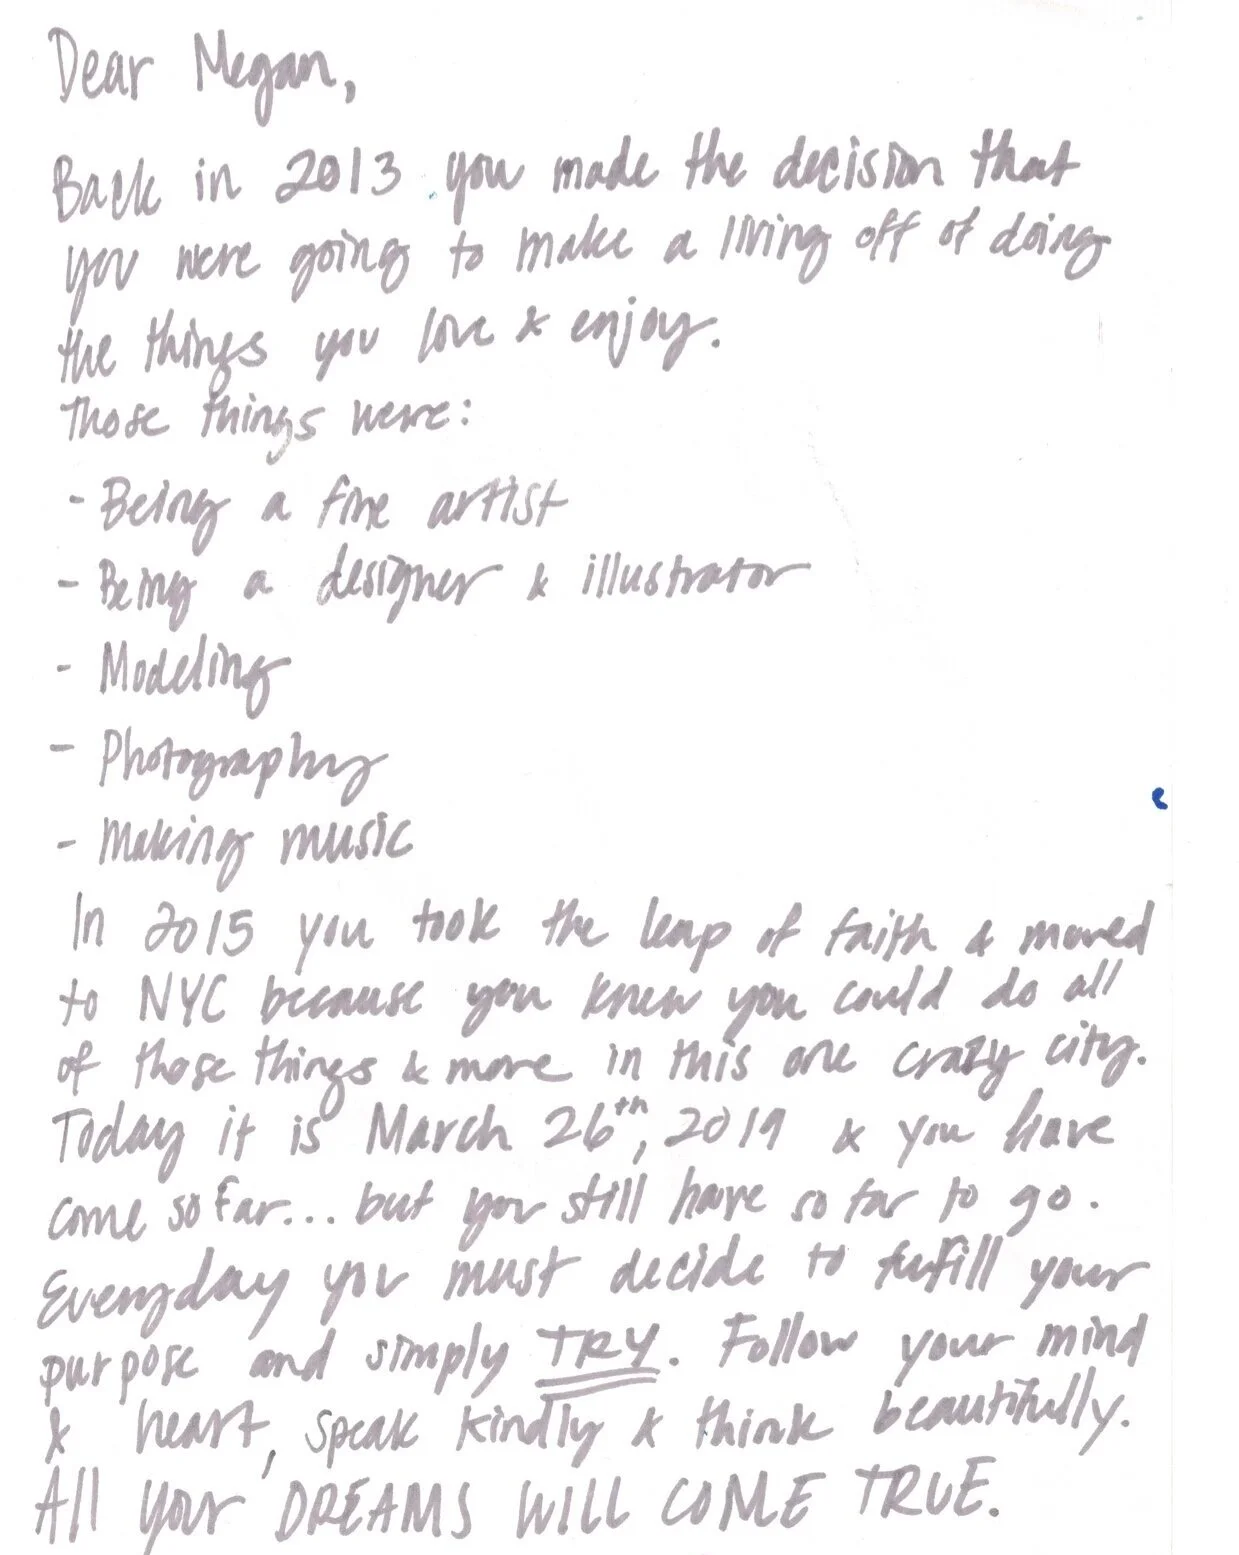 Dear Megan,
Back in 2013 you made the decision that
you were going to make a living off of doing
the things you love & enjoy.
Those things were:
- Being a fine artist
- Being a designer & illustrator
- Modeling
- Photography
- Making music
In 2015 you took the leap of faith & moved
to NYC because you knew you could do all
of those things & more in this one crazy city.
Today it is March 26th, 2019 & you have
come so far... but you still have so far to go.
Everyday you must decide to fulfill your
purpose and simply TRY. Follow your mind
& heart, speak kindly & think beautifully.
All your DREAMS WILL COME TRUE.